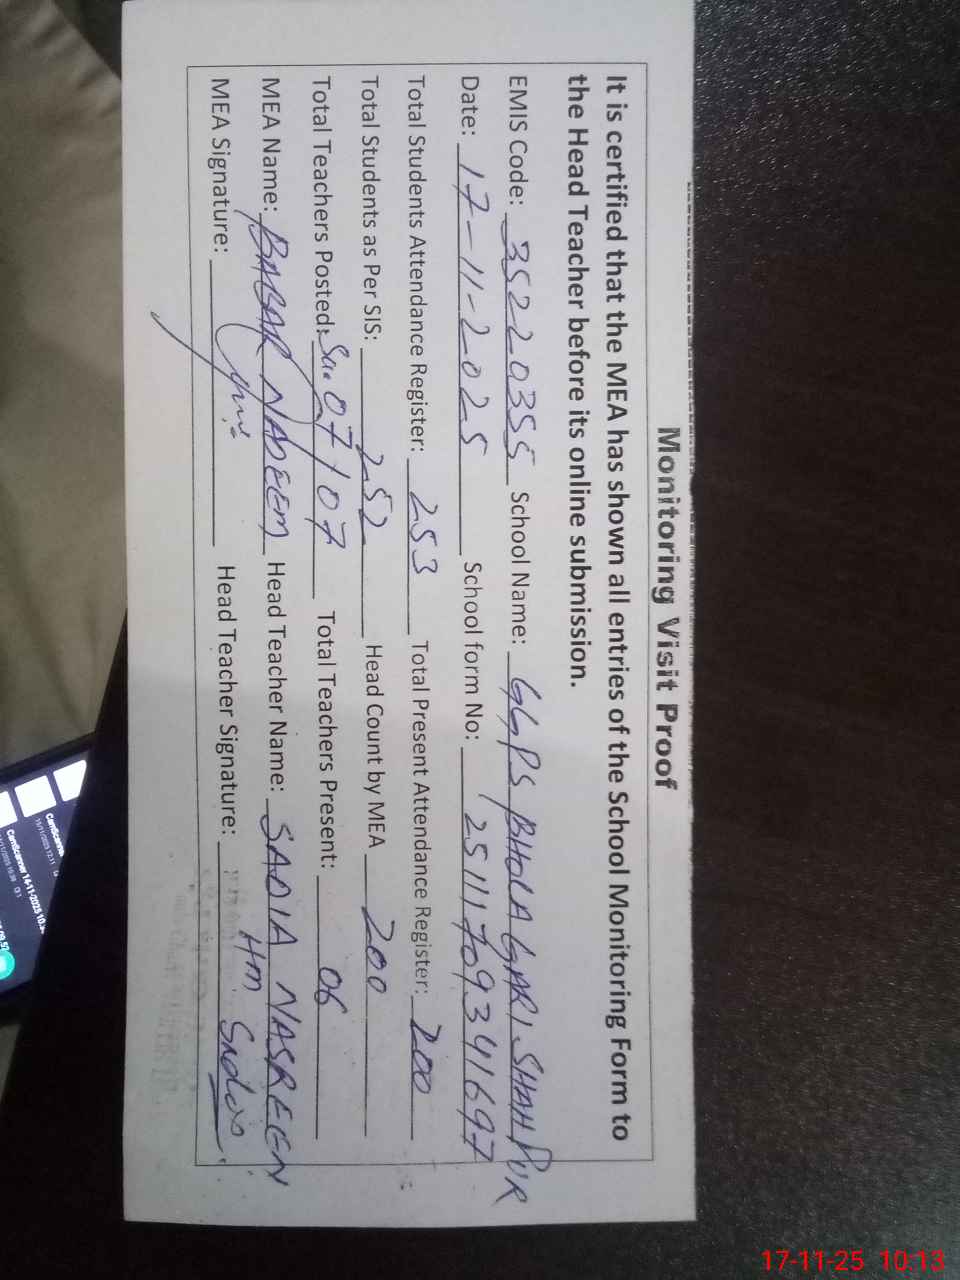 Monitoring Visit Proof
It is certified that the MEA has shown all entries of the School Monitoring Form to
the Head Teacher before its online submission.
EMIS Code: 35220355 School Name: GGPS BHOLA GARI SHAHPUR
Date: 17-11-2025 School form No: 251117093341697
Total Students Attendance Register: 253 Total Present Attendance Register: 200
Total Students as Per SIS: 252 Head Count by MEA 200
Total Teachers Posted: Sa. 07/07 Total Teachers Present: 06
MEA Name: BABAR NADEEM Head Teacher Name: SADIA NASREEN
MEA Signature: Head Teacher Signature: HM Sadia
CamScanner 14-11-2025 10.
17-11-25 10:13